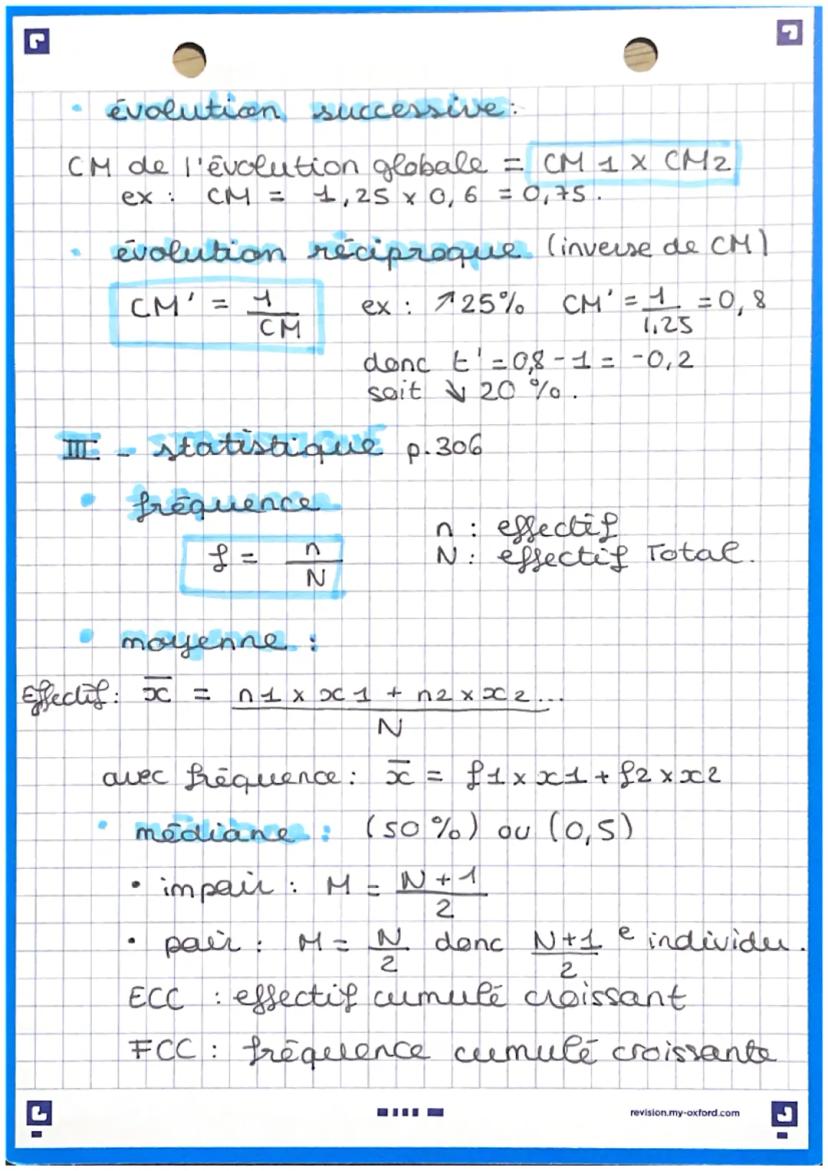 • évolution successive:
CM de l'évolution globale = CM 1 x CM2
ex : CM = 1,25 x 0,6 = 0,75.
• évolution réciproque (inverse de CM)
CM' = 1/CM ex : ↗25% CM' = 1/1,25 = 0,8
donc t' = 0,8 - 1 = -0,2
soit ↘ 20 %.
III - statistique p.306
• fréquence
f = n/N n : effectif
N : effectif Total.
• moyenne :
Effectif : x̄ = n1 x x1 + n2 x x2.../N
avec fréquence : x̄ = f1 x x1 + f2 x x2
• médiane : (50 %) ou (0,5)
• impair : M = N+1/2
• pair : M = N/2 donc N+1/2 e individu.
ECC : effectif cumulé croissant
FCC : fréquence cumulé croissante
revision.my-oxford.com